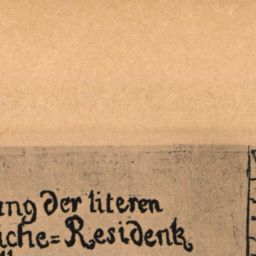 ung der literen
iche=Residentz